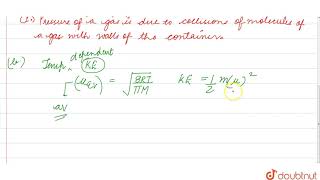 (a) Pressure of a gas is due to collisions of molecules of
a gas with walls of the container.
(b) Temp. dependent
KE
(u_av) = √8RT/πM KE = 1/2 m(u)²
av
doubtnut